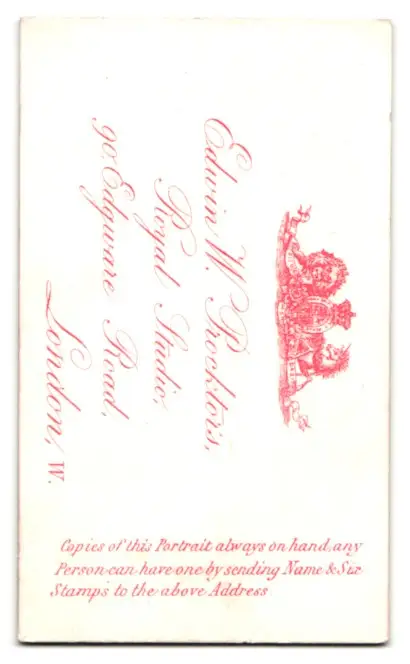 Edwin W. Procktor's,
Royal Studio,
90. Edgware Road,
London, W.
Copies of this Portrait always on hand, any
Person can have one by sending Name & Six
Stamps to the above Address